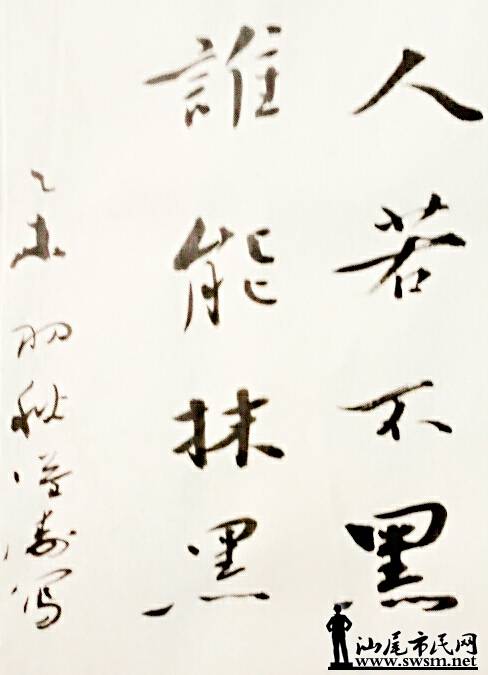 人若不黑
誰能抹黑
乙未初秋
写
汕尾市民网
www.swsm.net